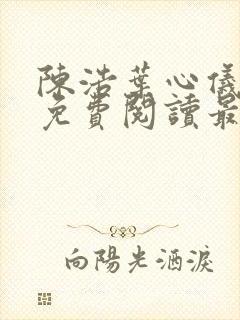 陳浩葉心儀
免費閱讀最
向陽光酒淚